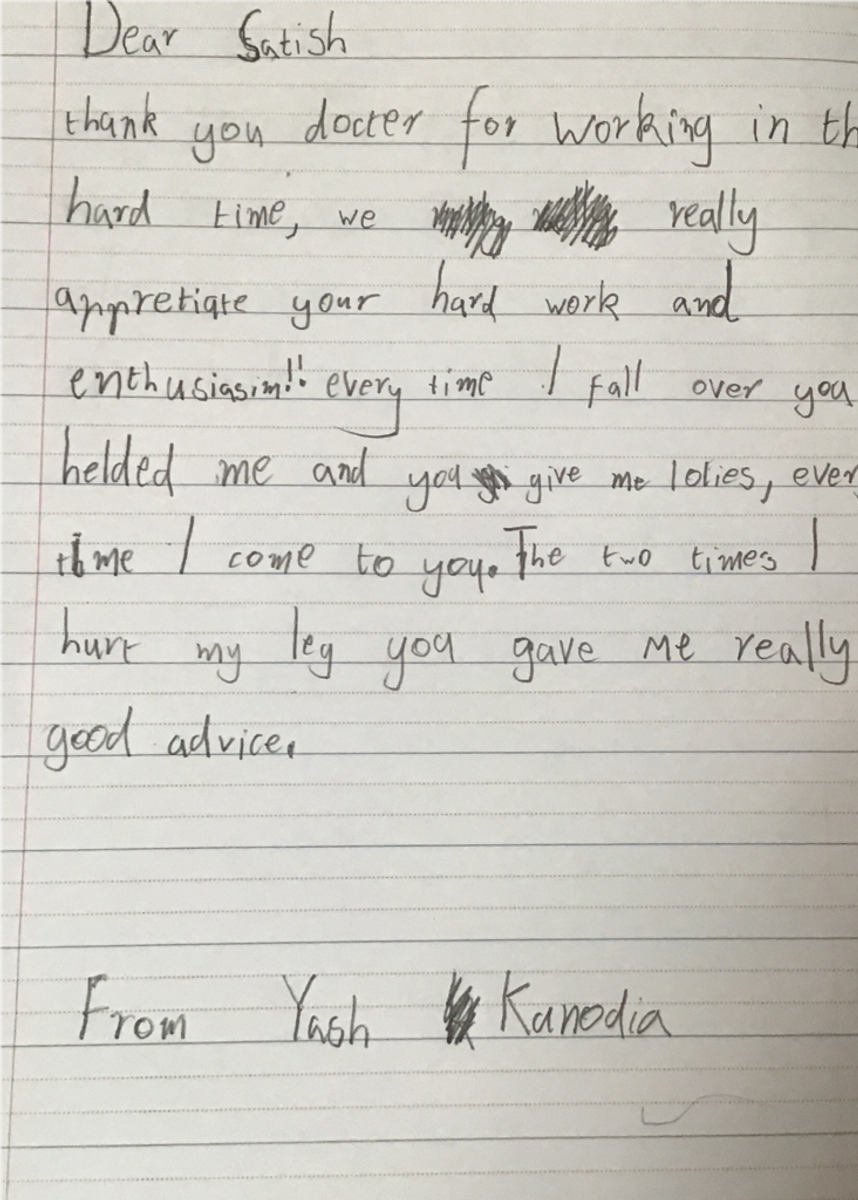 Dear Satish
thank you docter for working in th
hard time, we really
appretiate your hard work and
enthusiasim!! every time I fall over you
helded me and you give me lolies, every
time I come to you. The two times I
hurt my leg you gave me really
good advice.
From Yash Kanodia